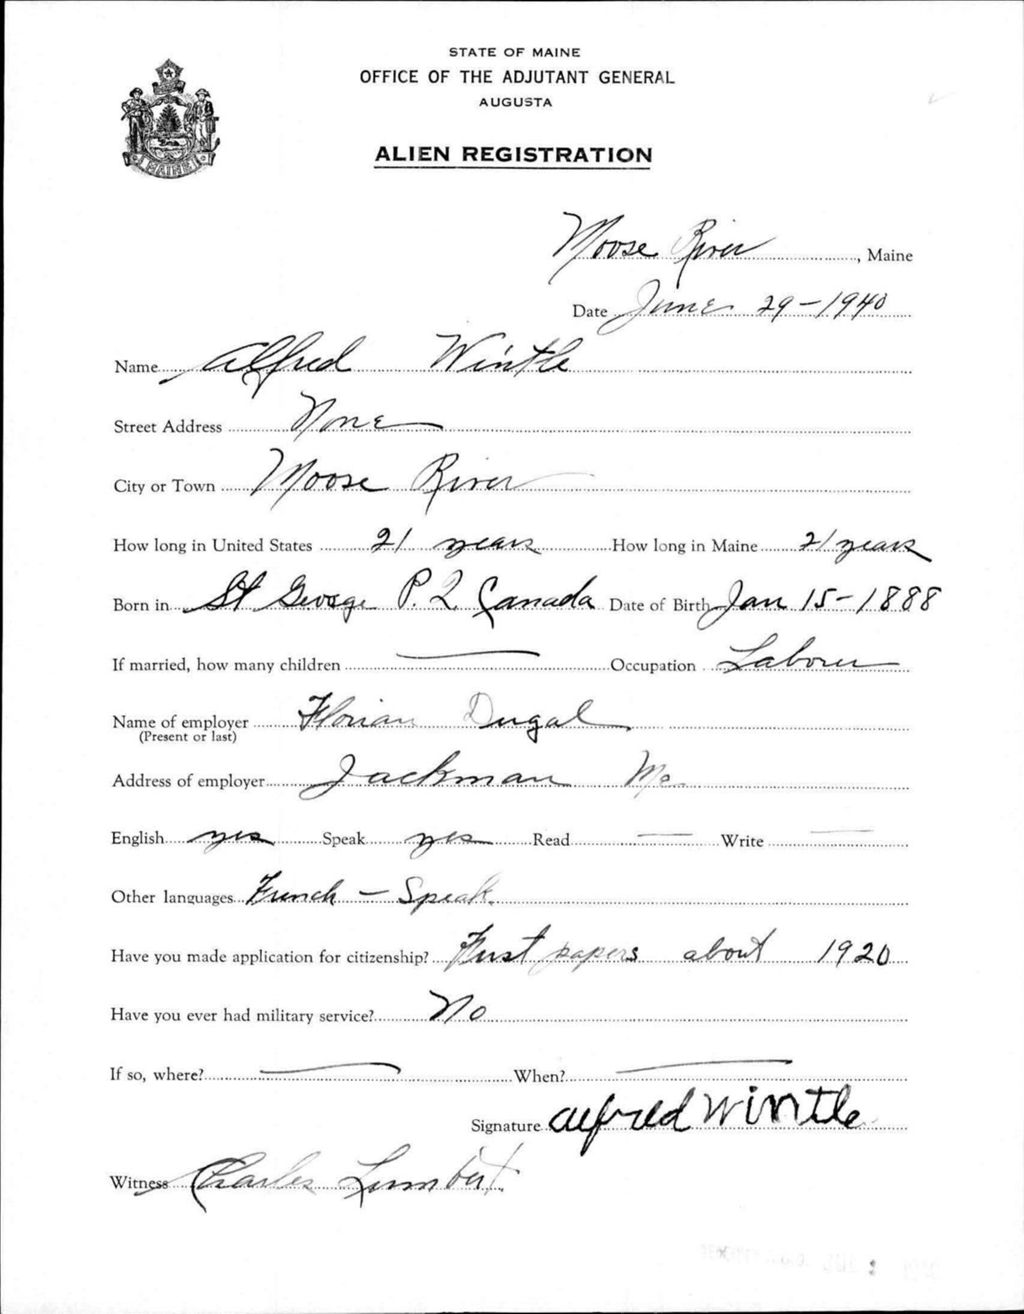 STATE OF MAINE
OFFICE OF THE ADJUTANT GENERAL
AUGUSTA
ALIEN REGISTRATION
MAINE
Moose River, Maine
Date June 29-1940
Name Alfred Wintle
Street Address None
City or Town Moose River
How long in United States 21 years How long in Maine 21 years
Born in St George P.Q. Canada Date of Birth Jan 15-1888
If married, how many children — Occupation Laborer
Name of employer Florian Dugal
(Present or last)
Address of employer Jackman Me.
English yes Speak yes Read — Write —
Other languages French - Speak.
Have you made application for citizenship? First papers about 1920
Have you ever had military service? No
If so, where? — When? —
Signature Alfred Wintle
Witness Charles Lumbert